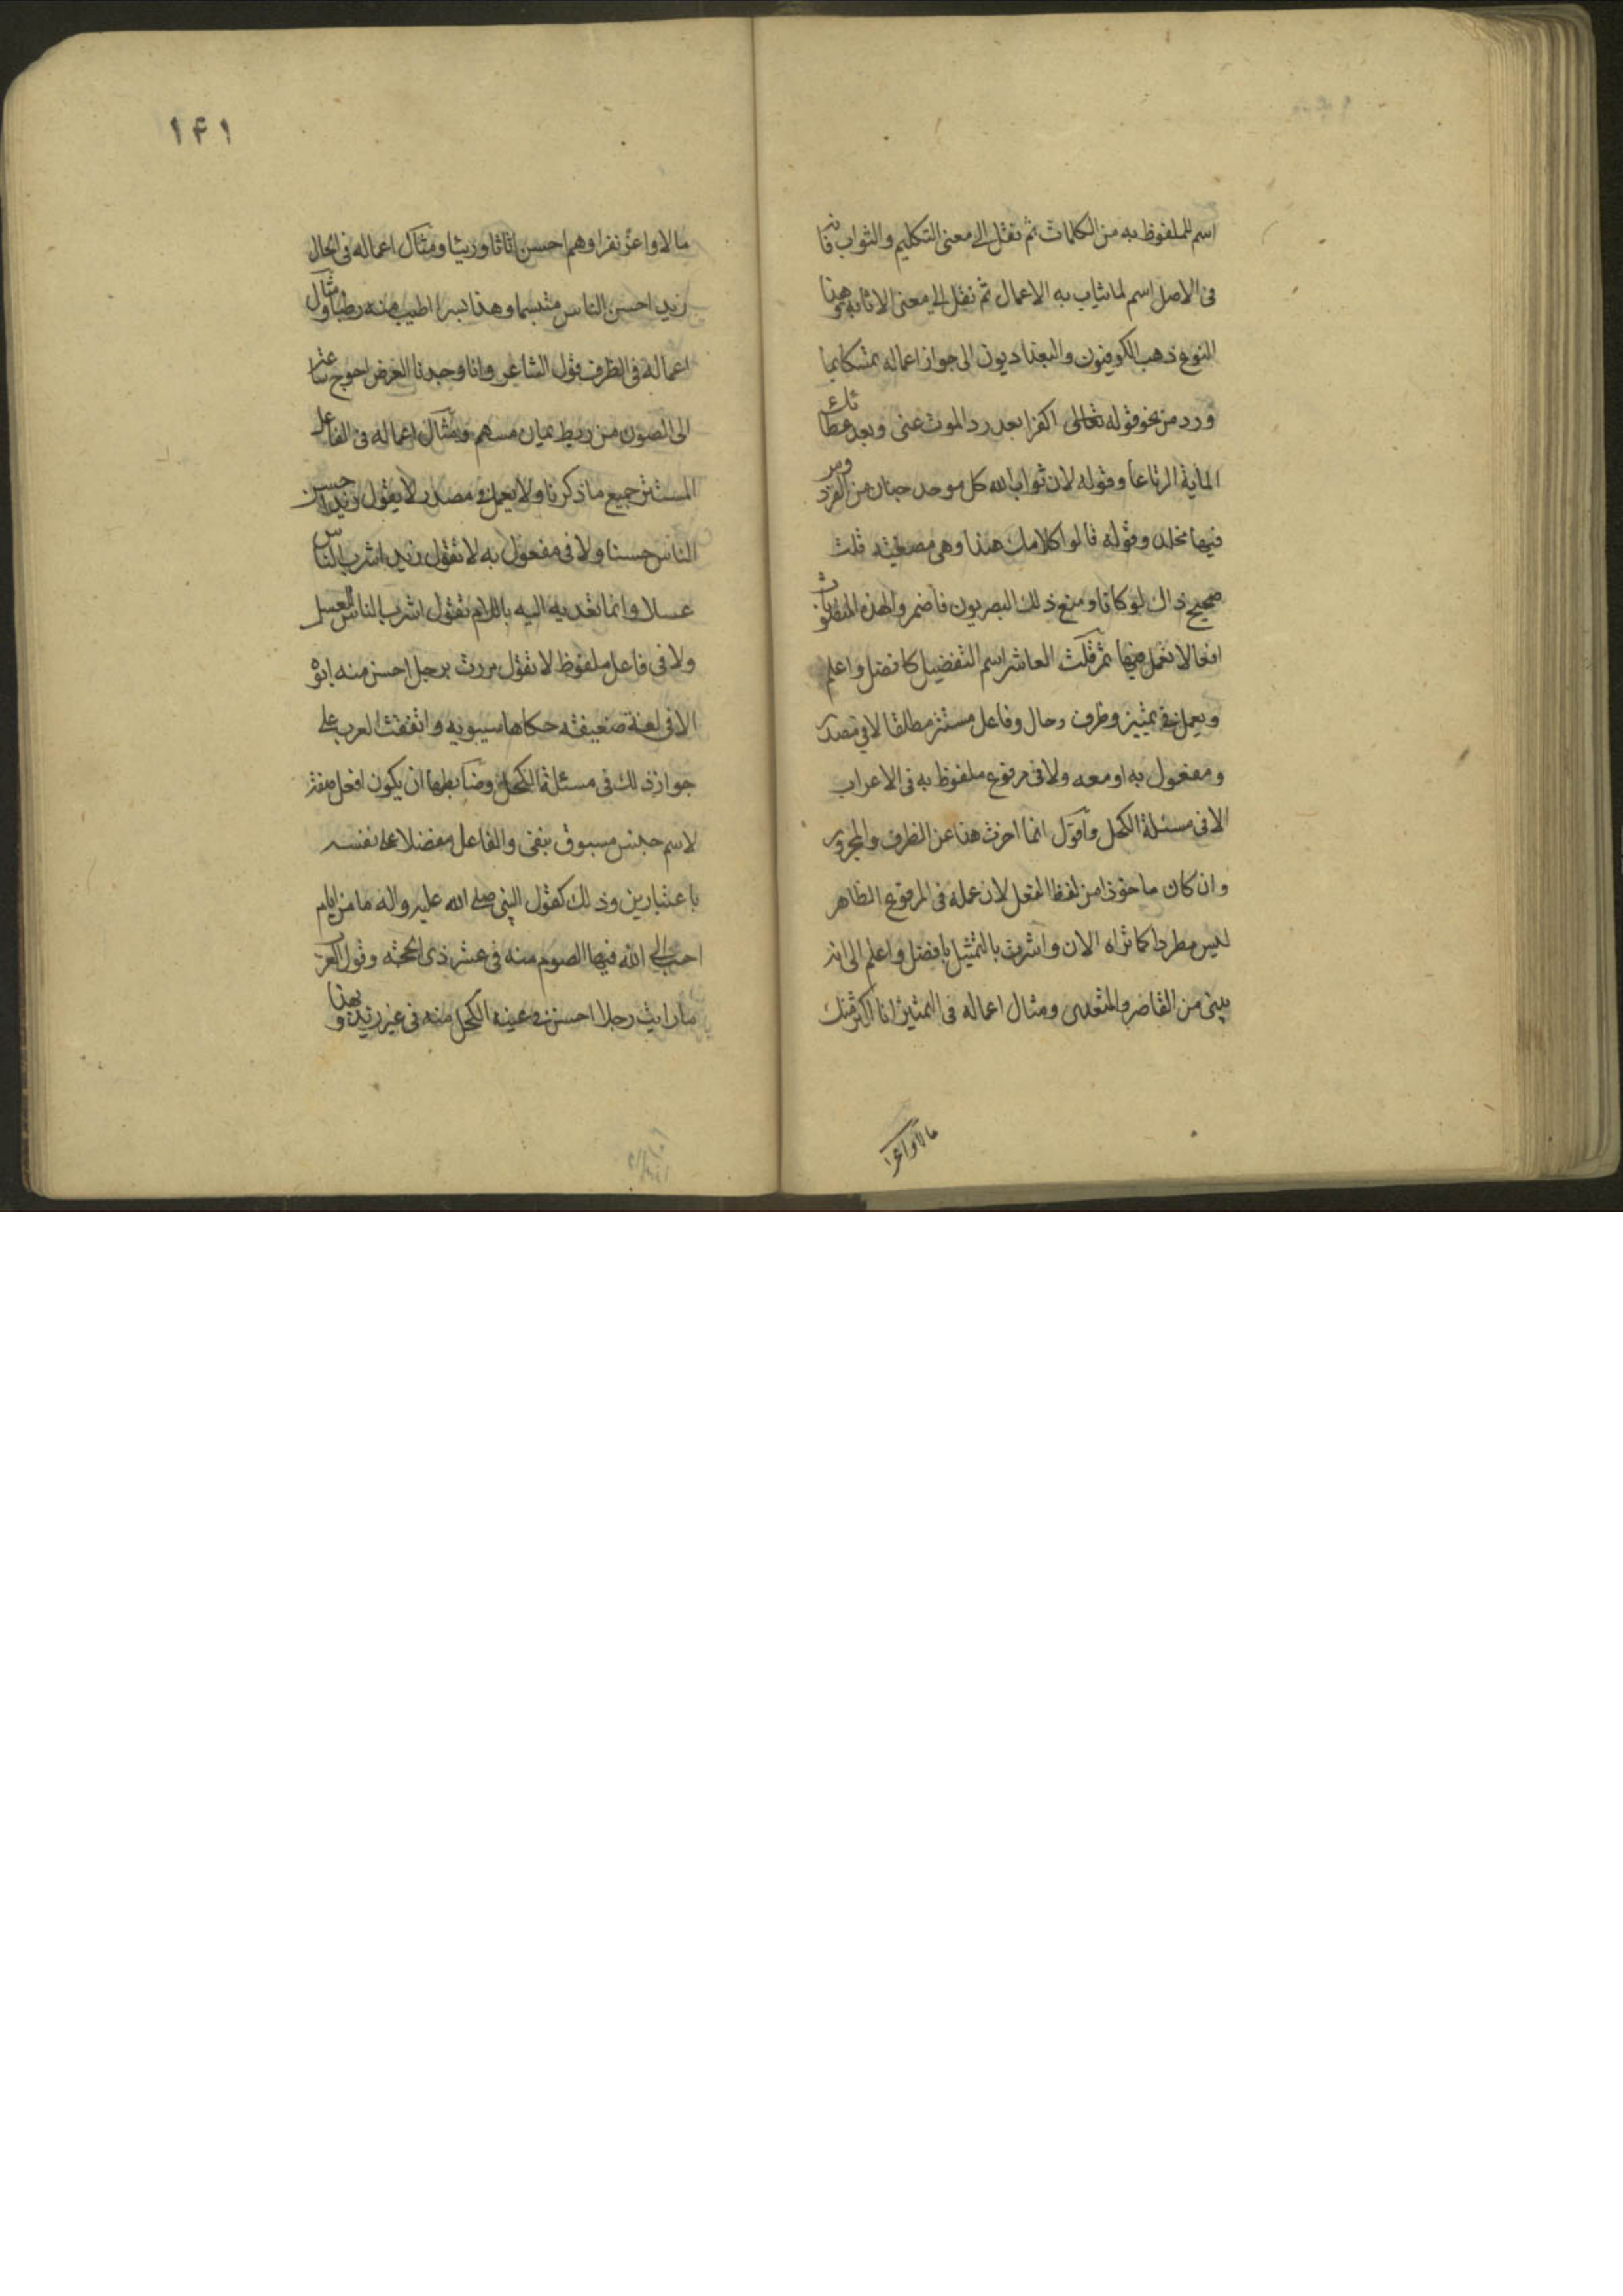 اسم للملفوظ به من الكلمات ثم نقل الى معنى التكليم والثواب فانه
فى الاصل اسم لما يثاب به الاعمال ثم نقل الى معنى الاثابة وهذا
النوع ذهب الكوفيون والبغداديون الى جواز اعماله تمسكا بما
ورد من نحو قوله تعالى اكفرا بعد رد الموت عنى وبعد عطائك
الماية الرتاعا وقوله لان ثواب الله كل موحد جنان من الفردوس
فيها يخلد وقوله قالوا كلامك هندا وهى مصغية قلت
صحيح ذاك لو كانا ومنع ذلك البصريون فاضمروا لهذه المنصوبات
افعالا تعمل فيها ثم قلت العاشر اسم التفضيل كافضل واعلم
ويعمل فى تمييز وظرف وحال وفاعل مستتر مطلقا لا فى مصدر
ومفعول به او معه ولا فى مرفوع ملفوظ به فى الاعراب
الا فى مسئلة الكحل واقول انما اخرت هذا عن الظرف والمجرور
وان كان ماخوذا من لفظ الفعل لان عمله فى المرفوع الظاهر
ليس مطردا كما تراه الان واشرت بالتمثيل بافضل واعلم الى انه
يبنى من القاصر والمتعدى ومثال اعماله فى التمييز انا اكثر منك
مالا واعز
١۴١
مالا واعز نفرا وهم احسن اثاثا وريئا ومثال اعماله فى الحال
زيد احسن الناس متبسما وهذا بسرا اطيب منه رطبا ومثال
اعماله فى الظرف قول الشاعر وانا وجدنا العرض احوج ساعة
الى الصون من ريط يمان مسهم ومثال اعماله فى الفاعل
المستتر جميع ما ذكرنا ولا يعمل فى مصدر لا يقول زيد احسن
الناس حسنا ولا فى مفعول به لا تقول زيد اشرب الناس
عسلا وانما تعديه اليه باللام تقول اشرب الناس للعسل
ولا فى فاعل ملفوظ لا تقول مررت برجل احسن منه ابوه
الا فى لغة ضعيفة حكاها سيبويه واتفقت العرب على
جواز ذلك فى مسئلة الكحل وضابطها ان يكون افعل صفة
لاسم جنس مسبوق بنفى والفاعل مفضلا على نفسه
باعتبارين وذلك كقول النبى صلى الله عليه واله ما من ايام
احب الى الله فيها الصوم منه فى عشر ذى الحجة وقول العرب
ما رايت رجلا احسن فى عينه الكحل منه فى عين زيد وبهذا